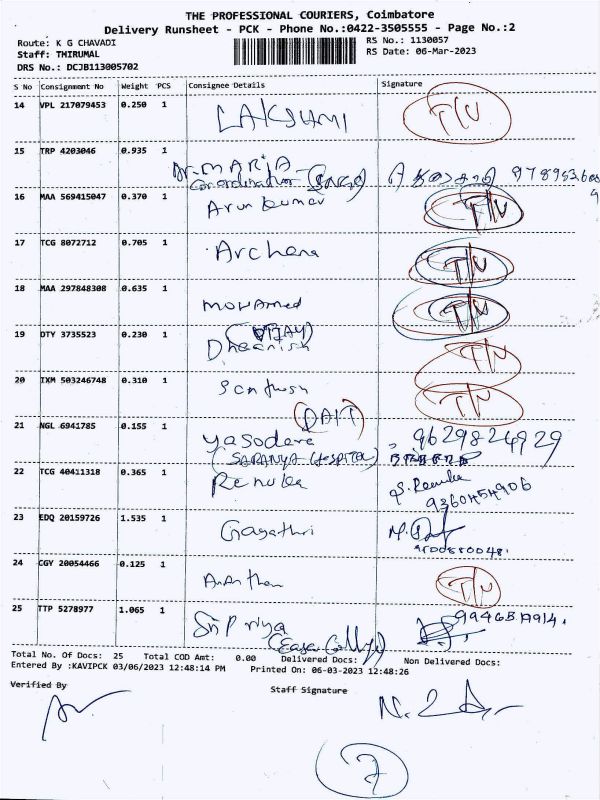 THE PROFESSIONAL COURIERS, Coimbatore
Delivery Runsheet - PCK - Phone No.:0422-3505555 - Page No.:2
Route: K G CHAVADI RS No.: 1130057
Staff: THIRUMAL RS Date: 06-Mar-2023
DRS No.: DCJB113005702
S No Consignment No Weight PCS Consignee Details Signature
14 VPL 217079453 0.250 1 LAKSHMI T/N
15 TRP 4203046 0.935 1 Dr. MARIA
Co-ordinator
16 MAA 569415047 0.370 1 Arun kumar T/N
17 TCG 8072712 0.705 1 Archana T/N
18 MAA 297848308 0.635 1 MOHAMED T/N
19 DTY 3735523 0.230 1 (VIJAY) T/N
Dheenish
20 IXM 503246748 0.310 1 Santhosh T/N
(DAIT)
21 NGL 6941785 0.155 1 Yasodara 9629824929
(SARANYA HOSPITAL)
22 TCG 40411318 0.365 1 Renuka S. Renuka
9360454906
23 EDQ 20159726 1.535 1 Gayathri
24 CGY 20054466 0.125 1 Ananthan T/N
25 TTP 5278977 1.065 1 Sri Priya
Total No. Of Docs: 25 Total COD Amt: 0.00 Delivered Docs: Non Delivered Docs:
Entered By :KAVIPCK 03/06/2023 12:48:14 PM Printed On: 06-03-2023 12:48:26
Verified By Staff Signature
7